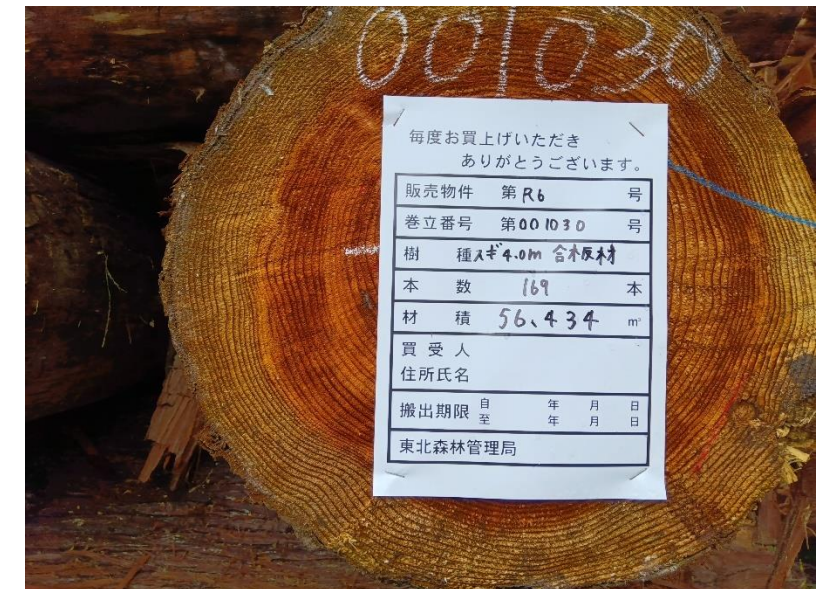 001030
毎度お買上げいただき
ありがとうございます。
販売物件 第R6号
巻立番号 第001030号
樹種 スギ4.0m 合板材
本数 169 本
材積 56、434 m³
買受人
住所氏名
搬出期限 自 年 月 日
至 年 月 日
東北森林管理局